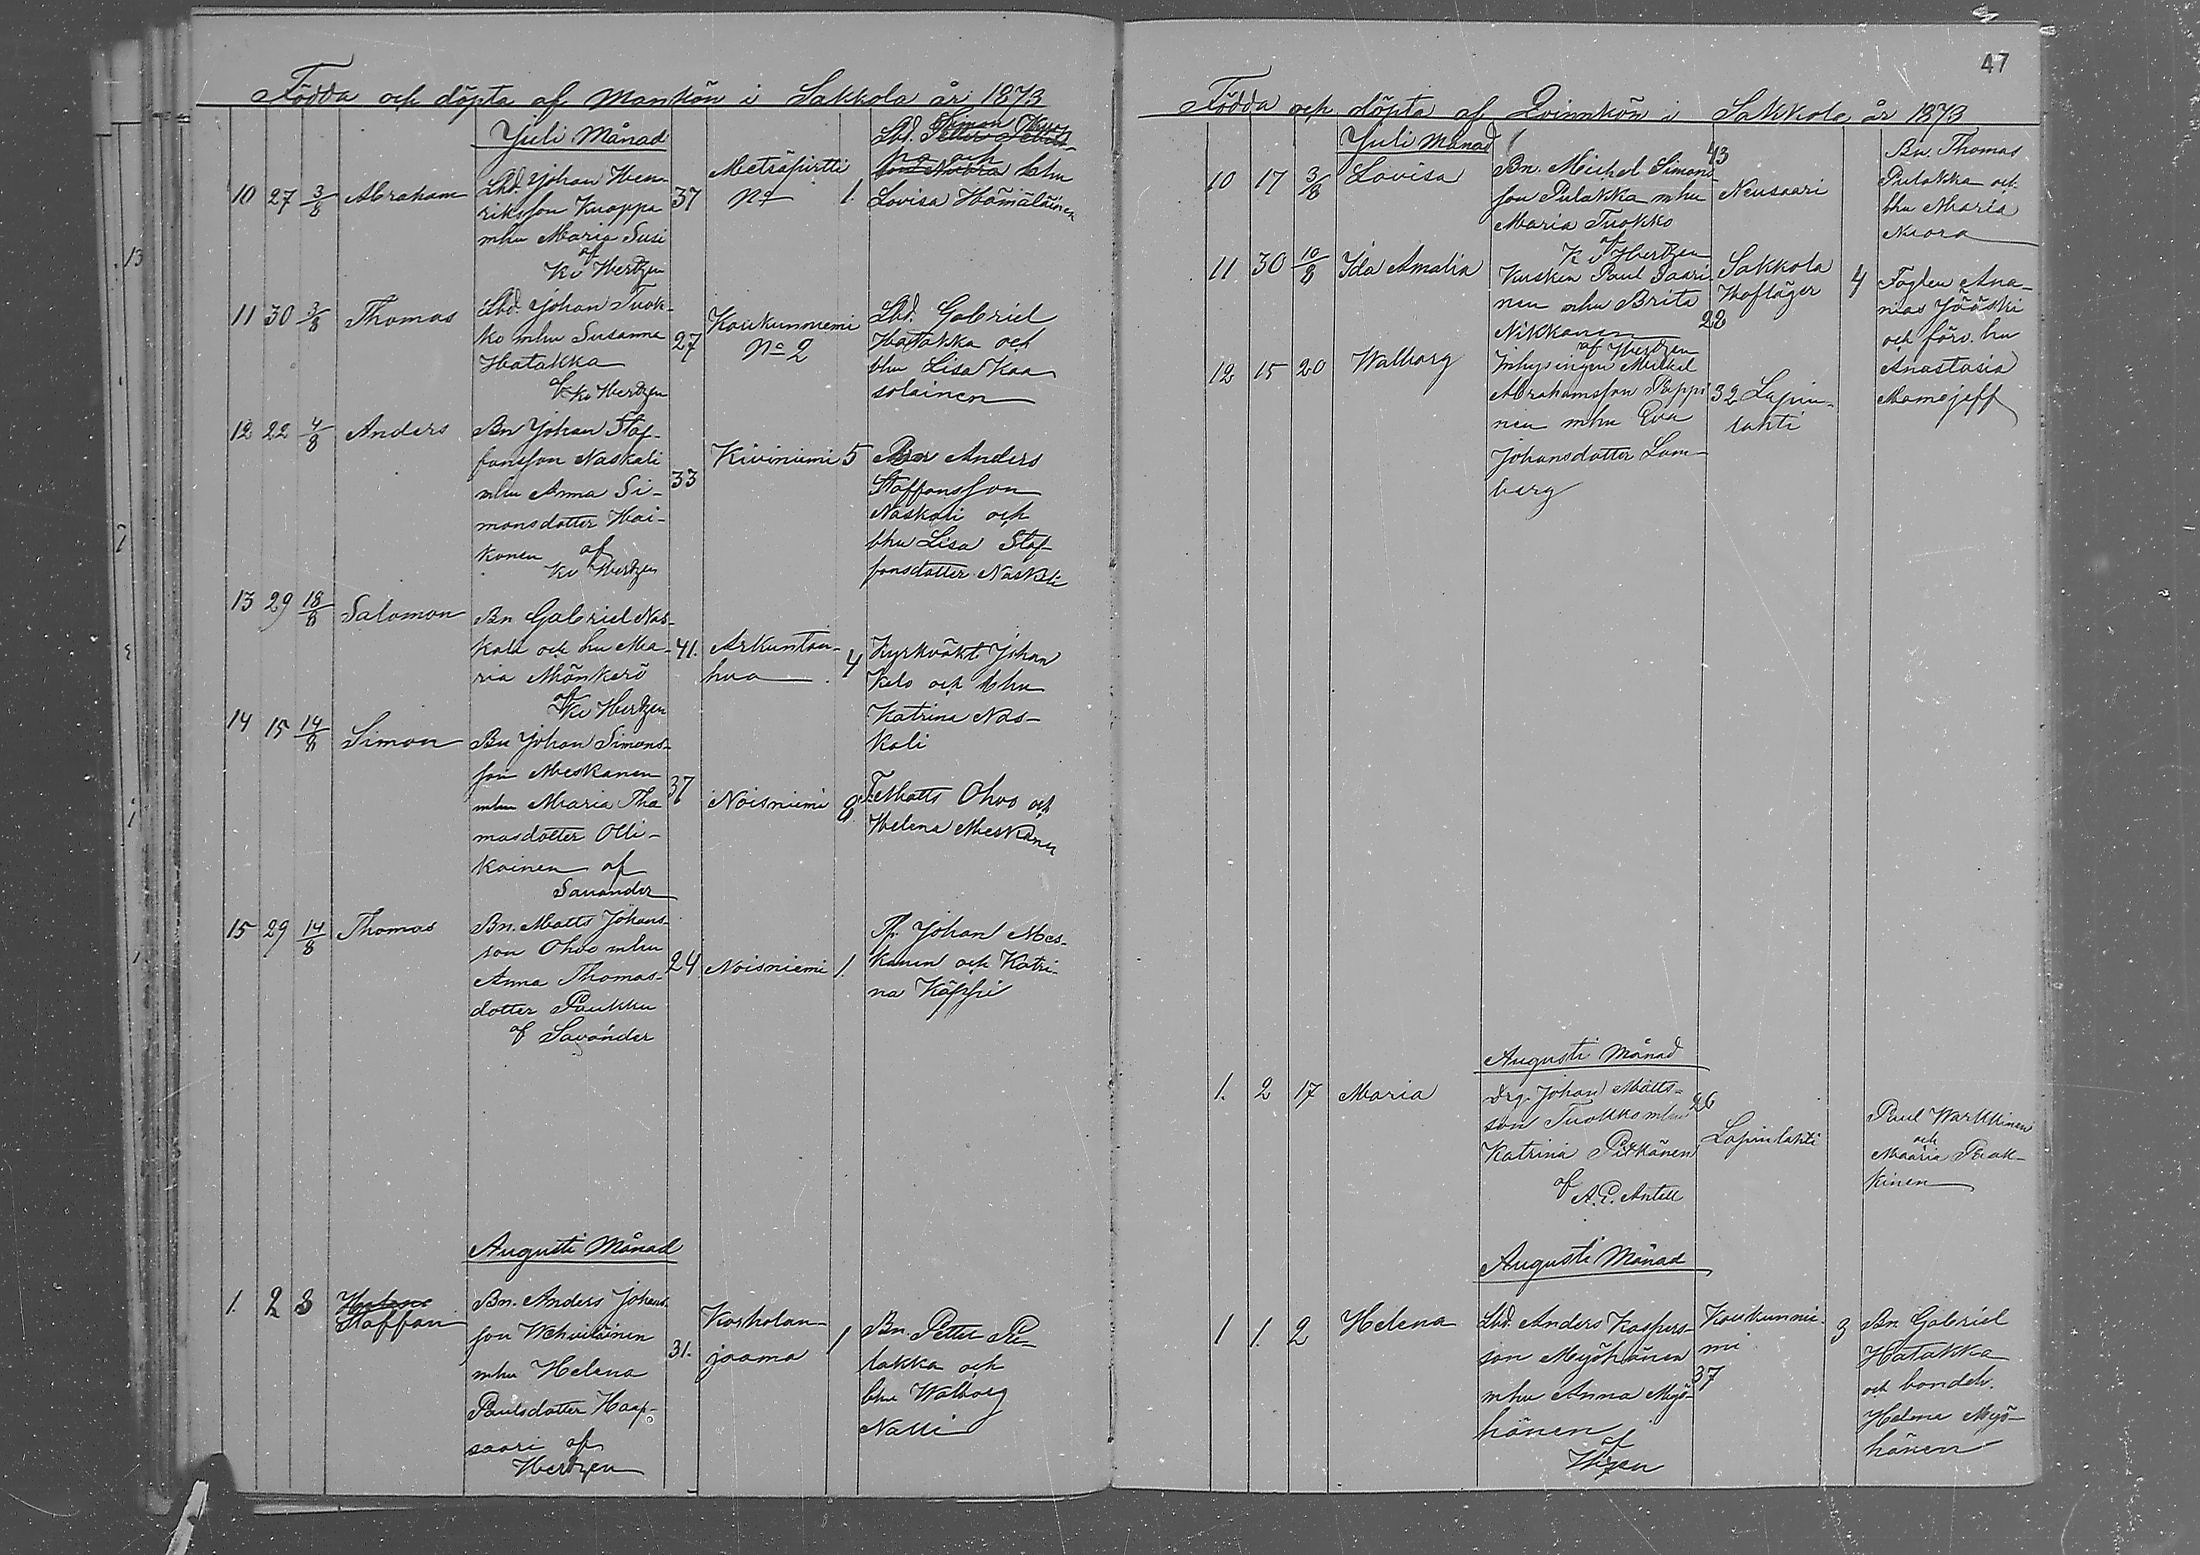 47
Födda och döpta af Mankön i Sakkola år 1873
Juli Månad
10 27 3/8 Abraham
Lbd. Johan Hen-
riksson Kuoppa
mhu Maria Susi
af
Kv Hertzen
37
Metsäpirtti
No 1.
Lbd. Simon
och bhu
Lovisa Hämäläinen
11 30 3/8 Thomas
Lbd. Johan Tuok-
ko mhu Susanna
Hatakka
af Kv Hertzen
27
Koukunniemi
No 2
Lbd. Gabriel
Hatakka och
bhu Lisa Kaa
solainen
12 22 4/8 Anders
Bn Johan Staf-
fansson Naskali
mhu Anna Si-
monsdotter Hai-
konen af
Kv Hertzen
33
Kiviniemi 5
Bn Anders
Staffansson
Naskali och
bhu Lisa Staf-
fansdotter Naskali
13 29 18/8 Salomon
Bn Gabriel Nas-
kali och hu Ma-
ria Mönkerö
af
Kv Hertzen
41.
Arkuntan-
hua 4
Kyrkväkt. Johan
Kelo och bhu
Katrina Nas-
kali
14 15 14/8 Simon
Bn Johan Simons-
son Meskanen
mhu Maria Tho
masdotter Olli-
kainen af
Savander
37
Noisniemi 8
T. Matts Ohvo och
Helena Meskanen
15 29 14/8 Thomas
Bn. Matts Johans-
son Ohvo mhu
Anna Thomas-
dotter Paukku
af Savander
24
Noisniemi 1.
Johan Mes-
kanen och Katri-
na Käppi
Augusti Månad
1. 2 3 Staffan
Bn. Anders Johans
son Wehviläinen
mhu Helena
Paulsdotter Haap-
saari af
Hertzen
31.
Korholan-
jaama 1
Bn. Petter Pu-
lakka och
bhu Walborg
Nalli
Födda och döpta af Qvinnkön i Sakkola år 1873
Juli Månad
10 17 3/8 Lovisa
Bn. Michel Simons
son Pulakka mhu
Maria Tuokko
af
Kv Hertzen
43
Neusaari
Bn. Thomas
Pulakka och
bhu Maria
Kiora
11 30 10/8 Ida Amalia
Kusken Paul Saari
nen mhu Brita
Nikkanen
af Hertzen
Sakkola
Hofläger
22
4
Fogden Ana-
nias Jääski
och förv. hu
Anastasia
Mamojeff
12 15 20 Walborg
Inhysingen Mickel
Abrahamsson Poppi
nen mhu Eva
Johansdotter Lom-
berg
32
Lapin-
lahti
Augusti Månad
1. 2 17 Maria
Drg. Johan Matts-
son Tuokko mhu
Katrina Pitkänen
af
A. P. Antell
26
Lapinlahti
Paul Warkkinen
och
Maaria Paak-
kinen
Augusti Månad
1 1. 2 Helena
Lbd. Anders Kaspers-
son Myöhänen
mhu Anna Myö-
hänen
af
Koukunnie-
mi
37
3
Bn. Gabriel
Hatakka
och bondeh.
Helena Myö-
hänen